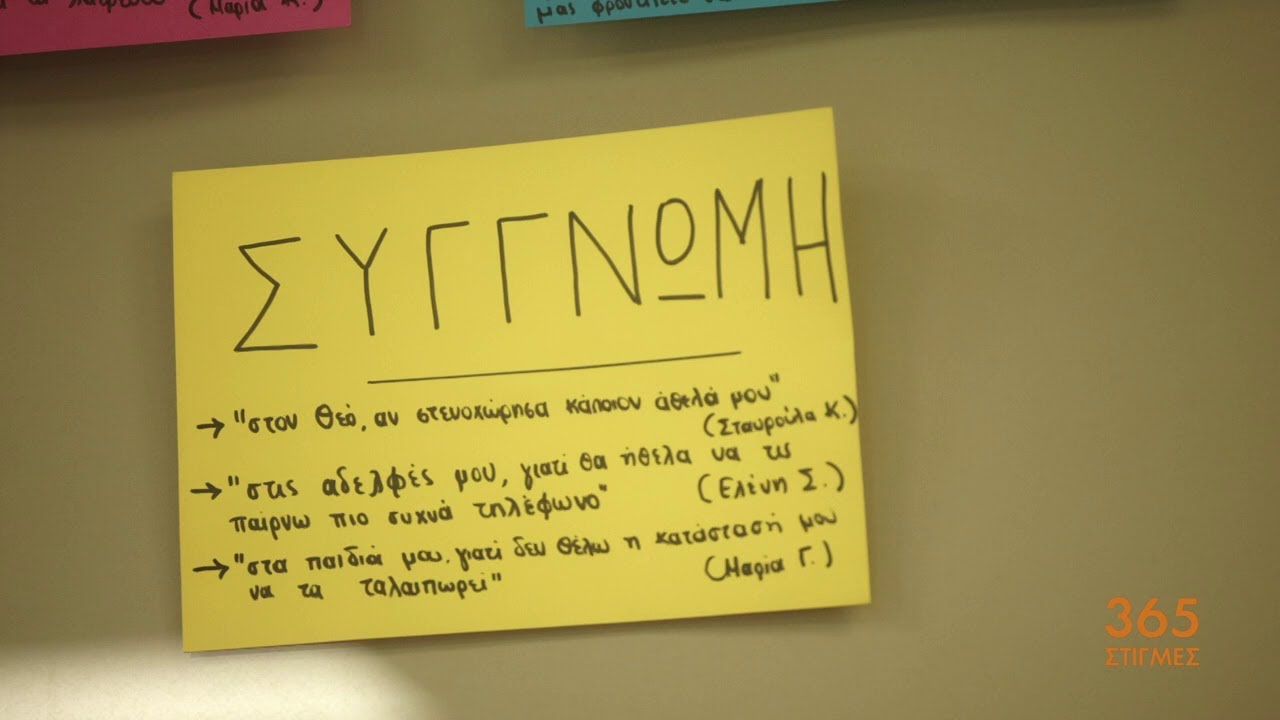 (Μαρία Κ.)
μας
ΣΥΓΓΝΩΜΗ
→ "στον Θεό, αν στενοχώρησα κάποιον άθελά μου"
(Σταυρούλα Κ.)
→ "στις αδελφές μου, γιατί θα ήθελα να τις
παίρνω πιο συχνά τηλέφωνο" (Ελένη Σ.)
→ "στα παιδιά μου, γιατί δεν θέλω η κατάστασή μου
να τα ταλαιπωρεί" (Μαρία Γ.)
365
ΣΤΙΓΜΕΣ